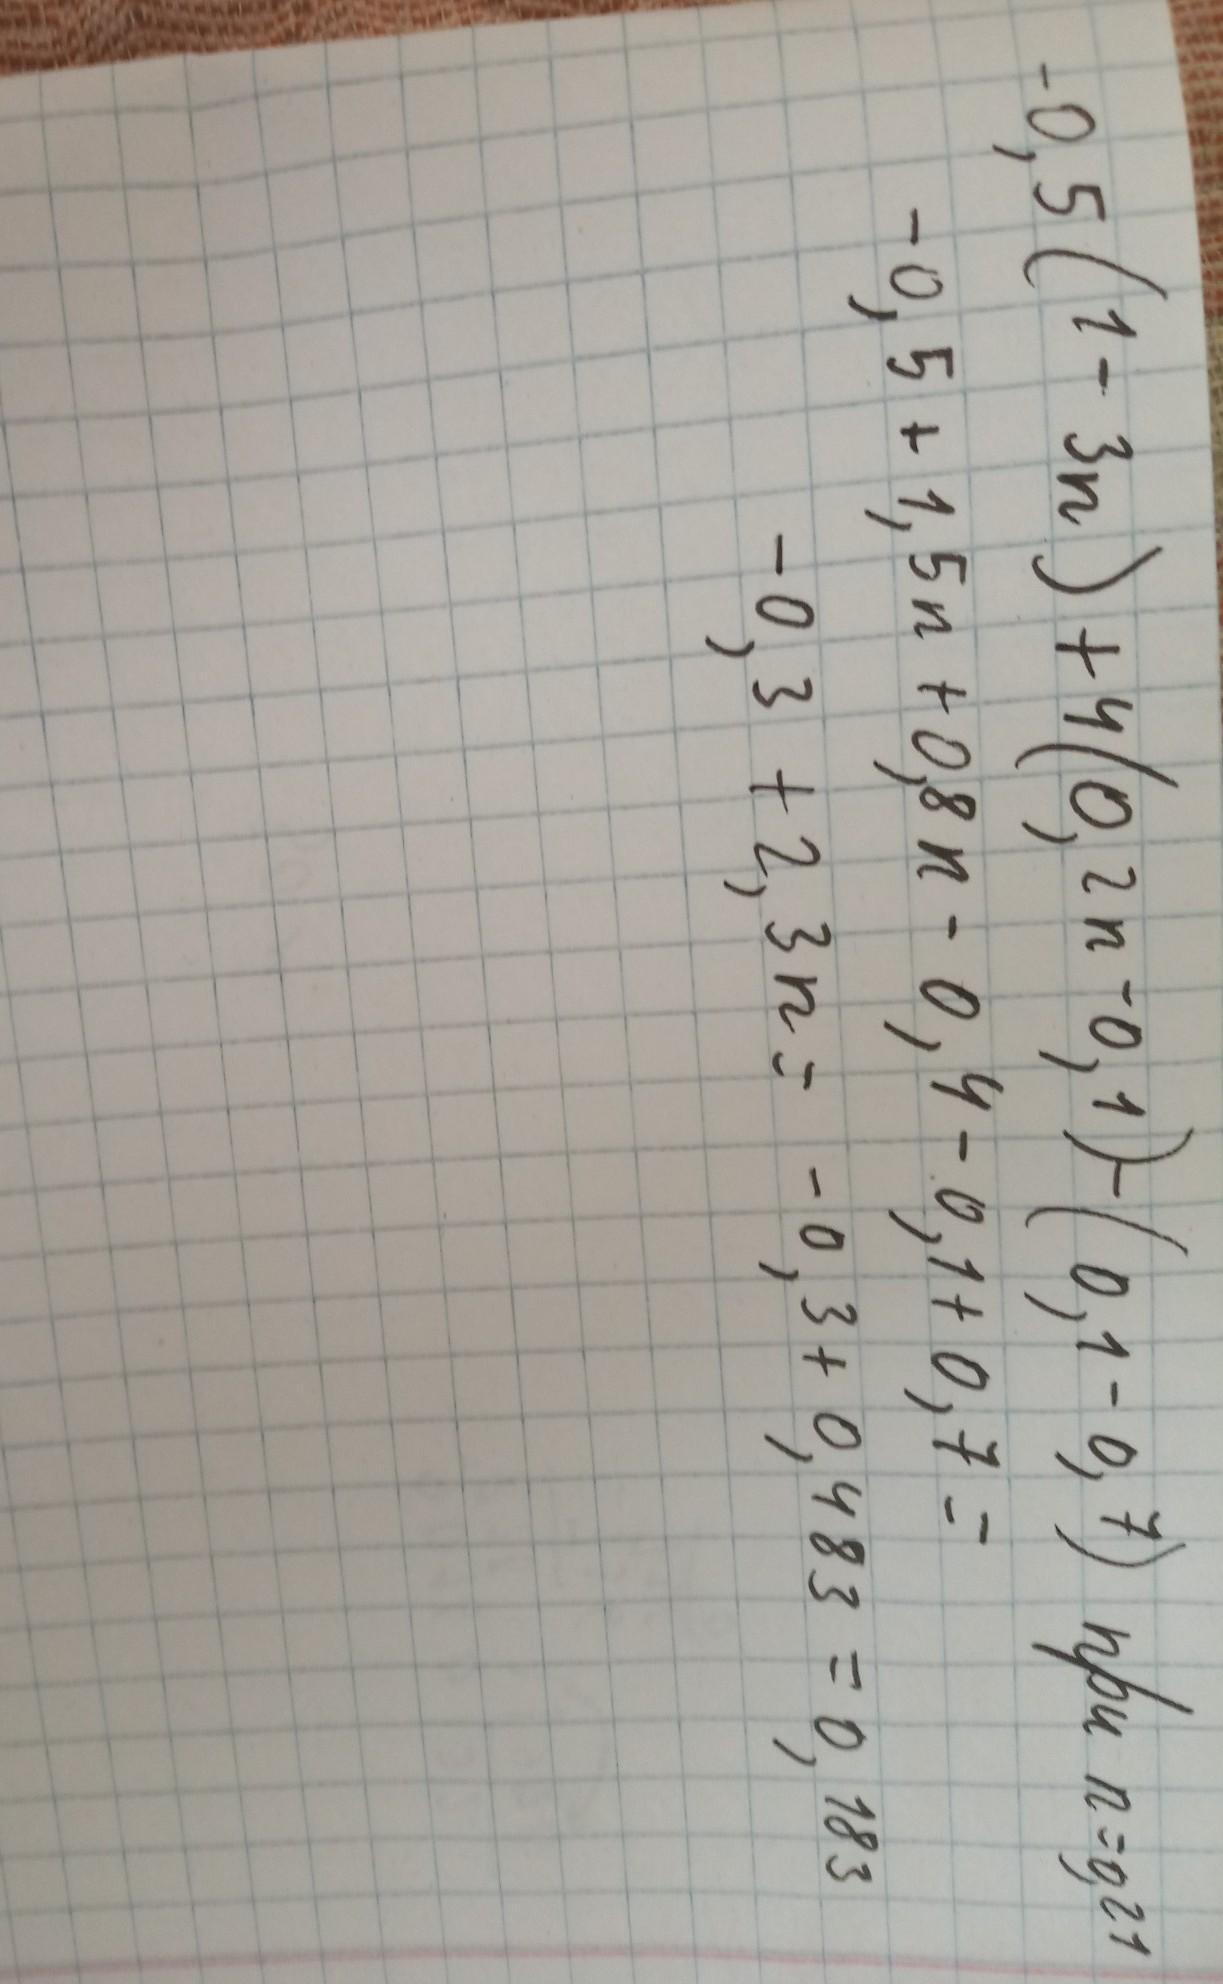 -0,5(1-3n)+4(0,2n-0,1)-(0,1-0,7) при n=0,21
-0,5+1,5n+0,8n-0,4-0,1+0,7=
-0,3+2,3n= -0,3+0,483=0,183